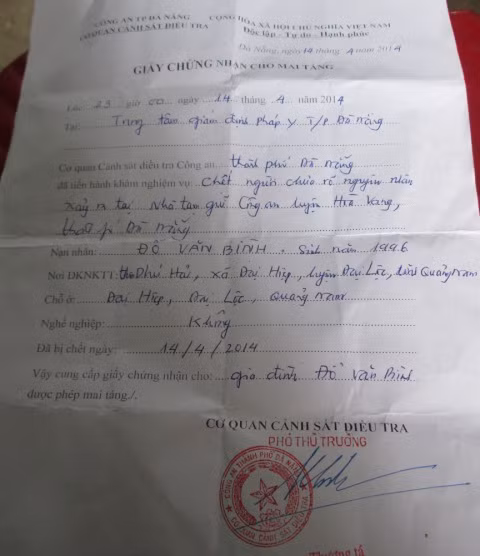 CÔNG AN TP ĐÀ NẴNG
CƠ QUAN CẢNH SÁT ĐIỀU TRA
CỘNG HÒA XÃ HỘI CHỦ NGHĨA VIỆT NAM
Độc lập - Tự do - Hạnh phúc
Đà Nẵng, ngày 14 tháng 4 năm 2014
GIẤY CHỨNG NHẬN CHO MAI TÁNG
Lúc 23 giờ 00 ngày 14 tháng 4 năm 2014
Tại: Trung tâm giám định pháp y T/p Đà Nẵng
Cơ quan Cảnh sát điều tra Công an thành phố Đà Nẵng
đã tiến hành khám nghiệm vụ: Chết người chưa rõ nguyên nhân
xảy ra tại Nhà tạm giữ Công an huyện Hoà Vang,
thành phố Đà Nẵng
Nạn nhân: ĐỖ VĂN BÌNH, Sinh năm 1996
Nơi ĐKNKTT: Phú Hải, xã Đại Hiệp, huyện Đại Lộc, tỉnh Quảng Nam
Chỗ ở: Đại Hiệp, Đại Lộc, Quảng Nam
Nghề nghiệp: Không
Đã bị chết ngày: 14/4/2014
Vậy cung cấp giấy chứng nhận cho: gia đình Đỗ Văn Bình
được phép mai táng./.
CƠ QUAN CẢNH SÁT ĐIỀU TRA
PHÓ THỦ TRƯỞNG
CÔNG AN THÀNH PHỐ ĐÀ NẴNG
CƠ QUAN CẢNH SÁT ĐIỀU TRA
Thượng tá